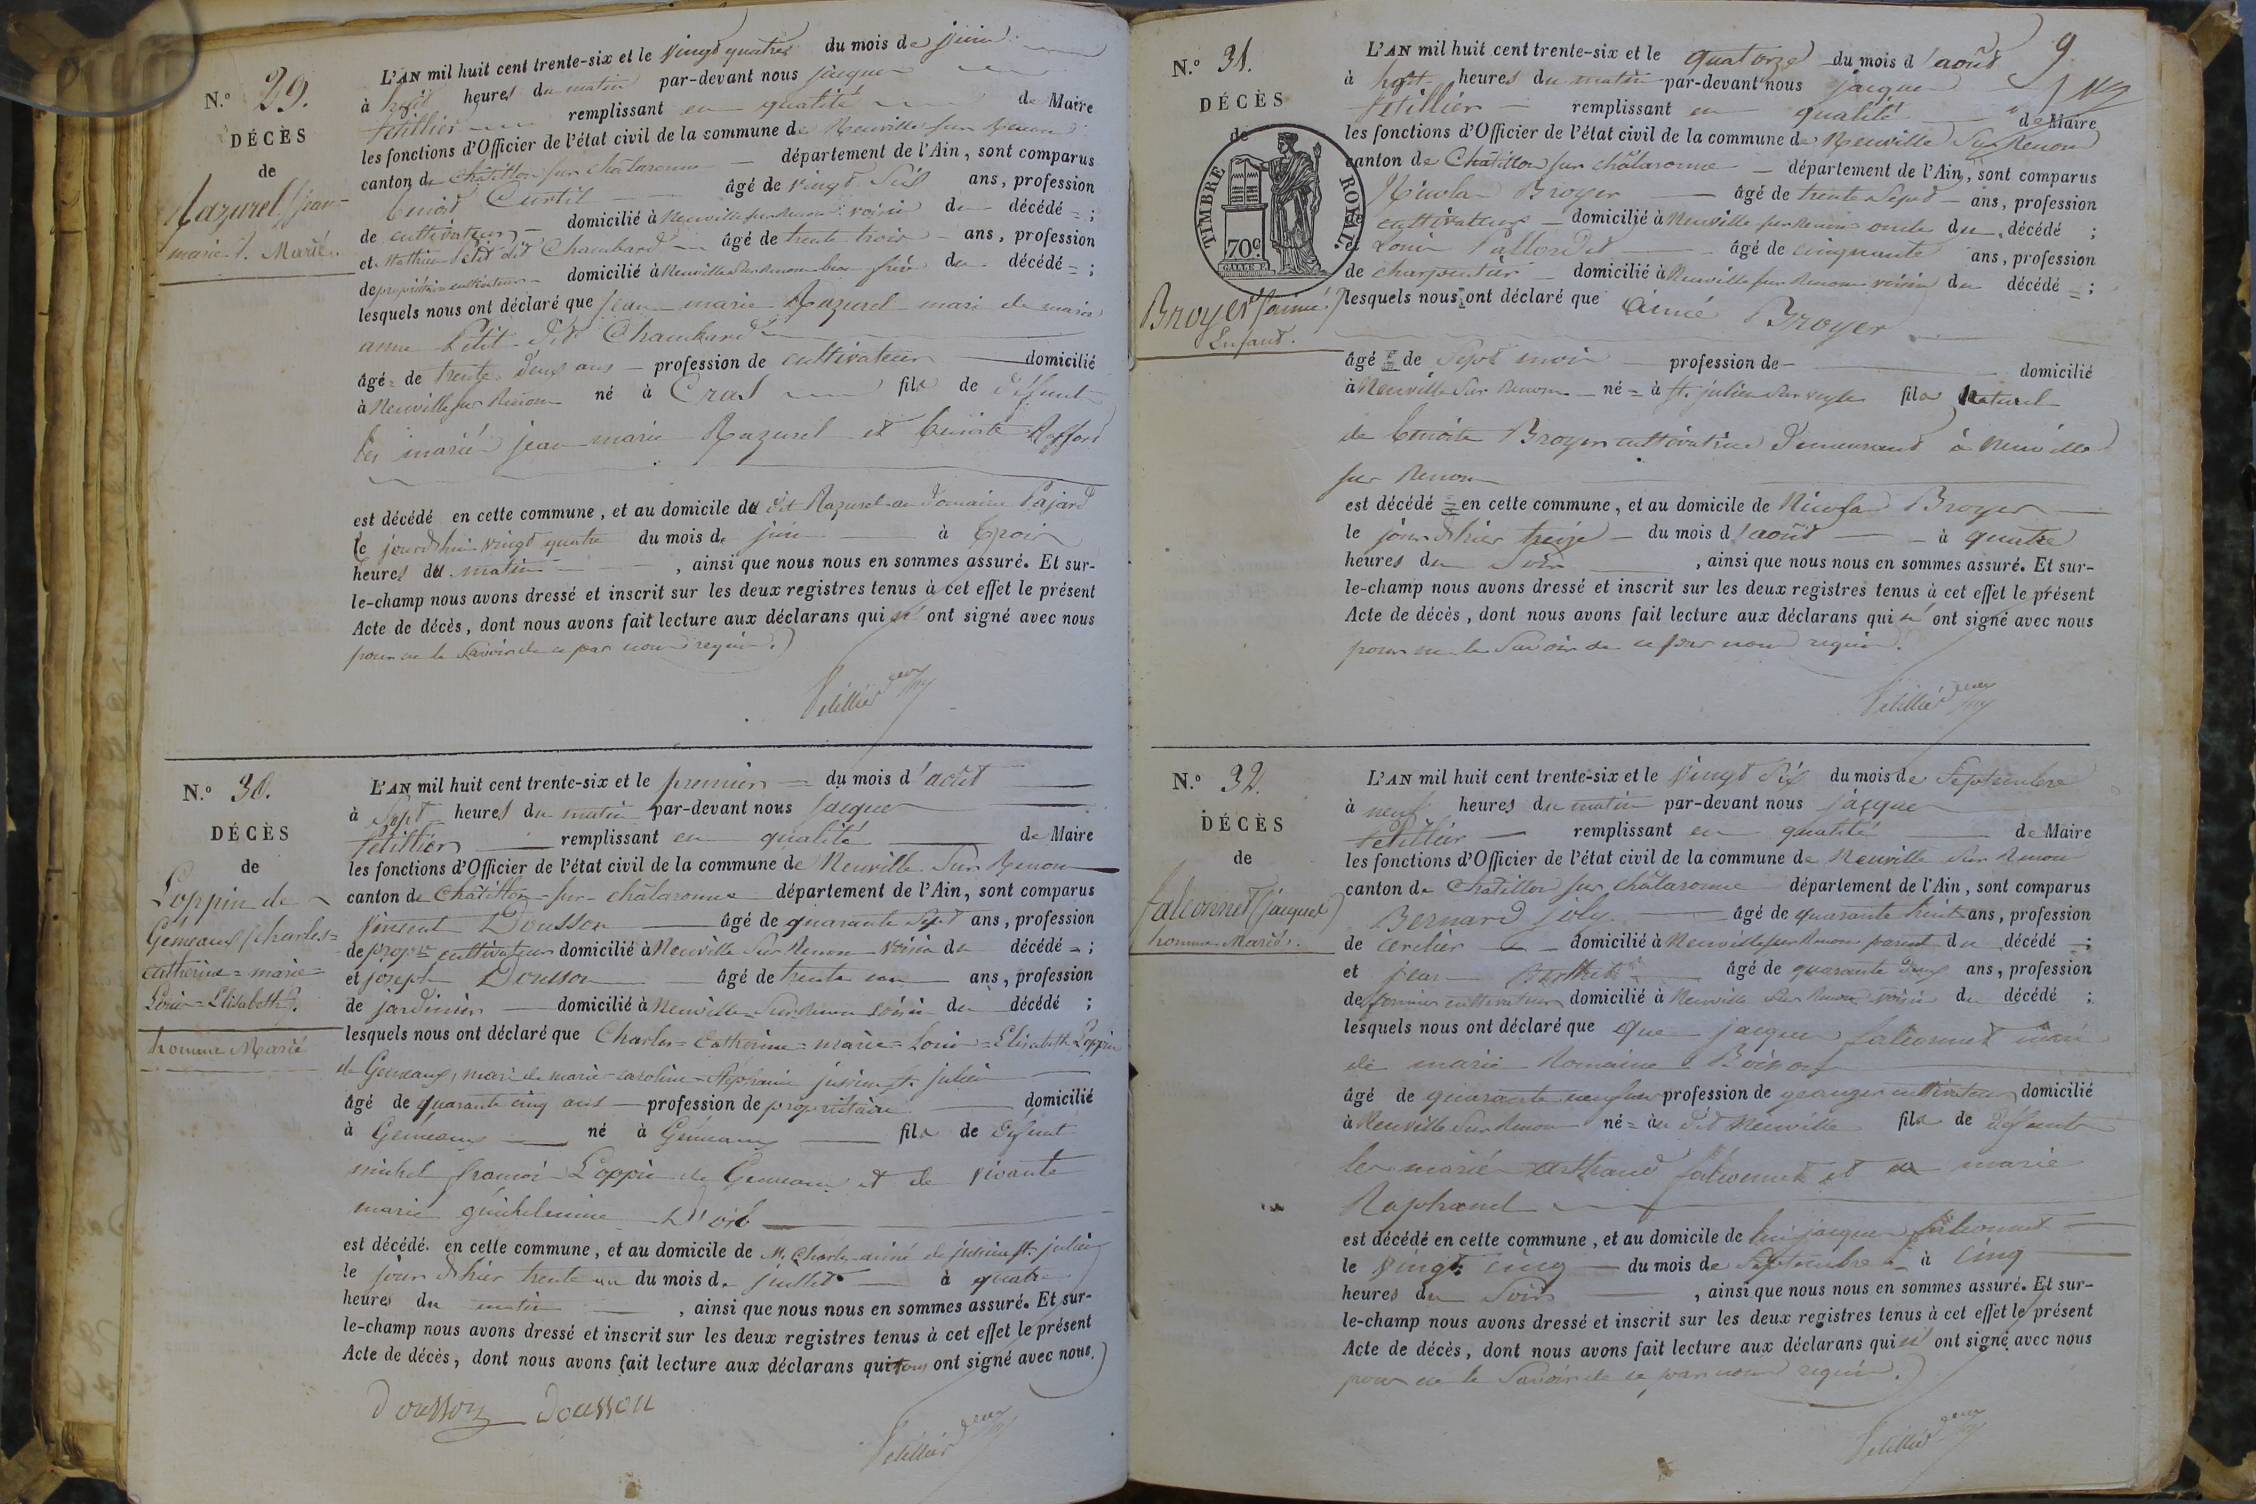 N.º 29.
DÉCÈS
de
Razurel Jean-
marie. Marié.
L'AN mil huit cent trente-six et le vingt quatre du mois de juin
à huit heures du matin par-devant nous jacques
fetillier remplissant en qualité de Maire
les fonctions d'Officier de l'état civil de la commune de Neuville sur Renom
canton de Châtillon sur châlaronne département de l'Ain, sont comparus
benoit Curtil âgé de vingt six ans, profession
de cultivateur domicilié à Neuville sur Renom voisin du décédé = ;
et Mathieu Petit dit Chambard âgé de trente trois ans, profession
de propriétaire cultivateur domicilié à Neuville sur Renom beau frère du décédé = ;
lesquels nous ont déclaré que jean marie Razurel mari de marie
anne Petit dit Chambard
âgé = de trente deux ans profession de cultivateur domicilié
à Neuville sur Renom né à Cras fils de défunt
les mariés jean marie Razurel et benoite
est décédé en cette commune, et au domicile du dit Razurel au domaine Pajard
le jourdhui vingt quatre du mois de juin à trois
heures du matin, ainsi que nous nous en sommes assuré. Et sur-
le-champ nous avons dressé et inscrit sur les deux registres tenus à cet effet le présent
Acte de décès, dont nous avons fait lecture aux déclarans qui n' ont signé avec nous
pour ne le savoir de ce par nous requis.
fetillier
N.º 30.
DÉCÈS
de
Loppin de
Gemeaux Charles=
catherine = marie=
Louis = Elisabeth.
homme Marié
L'AN mil huit cent trente-six et le premier du mois d'août
à sept heures du matin par-devant nous jacques
fetillier remplissant en qualité de Maire
les fonctions d'Officier de l'état civil de la commune de Neuville sur Renom
canton de Châtillon-sur-châlaronne département de l'Ain, sont comparus
vincent Dousson âgé de quarante sept ans, profession
de propre cultivateur domicilié à Neuville sur Renom voisin du décédé = ;
et joseph Dousson âgé de trente un ans, profession
de jardinier domicilié à Neuville sur Renom voisin du décédé ;
lesquels nous ont déclaré que Charles = catherine = marie = Louis = Elisabeth Loppin
de Gemeaux, mari de marie caroline Stéphanie jussieu st. julien
âgé de quarante cinq ans profession de propriétaire domicilié
à Gemeaux né à Gemeaux fils de défunt
michel françois Loppin de Gemeaux et de vivante
marie D'
est décédé. en cette commune, et au domicile de Mr Charle aimé de jussieu st. julien
le jour d'hier trente un du mois de juillet à quatre
heures du matin, ainsi que nous nous en sommes assuré. Et sur-
le-champ nous avons dressé et inscrit sur les deux registres tenus à cet effet le présent
Acte de décès, dont nous avons fait lecture aux déclarans qui tous ont signé avec nous.
Dousson Dousson
fetillier
9
N.º 31.
DÉCÈS
de
TIMBRE ROYAL.
70c
Broyer (aimé)
Enfant.
L'AN mil huit cent trente-six et le quatorze du mois d'août
à huit heures du matin par-devant nous jacques
fetillier remplissant en qualité de Maire
les fonctions d'Officier de l'état civil de la commune de Neuville sur Renom
canton de Châtillon sur châlaronne département de l'Ain, sont comparus
Nicolas Broyer âgé de trente sept ans, profession
cultivateur domicilié à Neuville sur Renom oncle du décédé ;
et Louis âgé de cinquante ans, profession
de charpentier domicilié à Neuville sur Renom voisin du décédé = ;
lesquels nous ont déclaré que aimé Broyer
âgé de sept mois profession de domicilié
à Neuville sur Renom né = à st. julien sur veyle fils naturel
de benoite Broyer cultivatrice demeurant à Neuville
sur Renom
est décédé en cette commune, et au domicile de Nicolas Broyer
le jour d'hier treize du mois d'août à quatre
heures du soir, ainsi que nous nous en sommes assuré. Et sur-
le-champ nous avons dressé et inscrit sur les deux registres tenus à cet effet le présent
Acte de décès, dont nous avons fait lecture aux déclarans qui n' ont signé avec nous
pour ne le savoir de ce par nous requis.
fetillier
N.º 32.
DÉCÈS
de
falconnet (jacques)
homme Marié.
L'AN mil huit cent trente-six et le vingt six du mois de septembre
à neuf heures du matin par-devant nous jacques
fetillier remplissant en qualité de Maire
les fonctions d'Officier de l'état civil de la commune de Neuville sur Renom
canton de Châtillon sur châlaronne département de l'Ain, sont comparus
Bernard joly âgé de quarante huit ans, profession
de domicilié à Neuville sur Renom parent du décédé = ;
et jean Berthet âgé de quarante deux ans, profession
de fermier cultivateur domicilié à Neuville sur Renom voisin du décédé ;
lesquels nous ont déclaré que que jacques falconnet mari
de marie Romaine
âgé de quarante neuf ans profession de granger cultivateur domicilié
à Neuville sur Renom né = au dit Neuville fils de défunts
les mariés falconnet et marie
Raphanel
est décédé en cette commune, et au domicile de lui jacques falconnet
le vingt cinq du mois de septembre à cinq
heures du soir, ainsi que nous nous en sommes assuré. Et sur-
le-champ nous avons dressé et inscrit sur les deux registres tenus à cet effet le présent
Acte de décès, dont nous avons fait lecture aux déclarans qui n' ont signé avec nous
pour ne le savoir de ce par nous requis.
fetillier